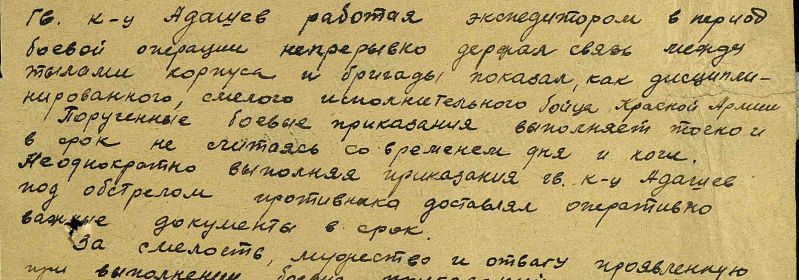 Гв. к-ц Адашев работая экспедитором в период
боевой операции непрерывно держал связь между
тылами корпуса и бригады, показал, как дисципли-
нированного, смелого исполнительного бойца Красной Армии
Порученные боевые приказания выполняет точно и
в срок не считаясь со временем дня и ночи.
Неоднократно выполняя приказания гв. к-ц Адашев
под обстрелом противника доставлял оперативно
важные документы в срок.
За смелость, мужество и отвагу проявленную
при выполнении боевых приказаний